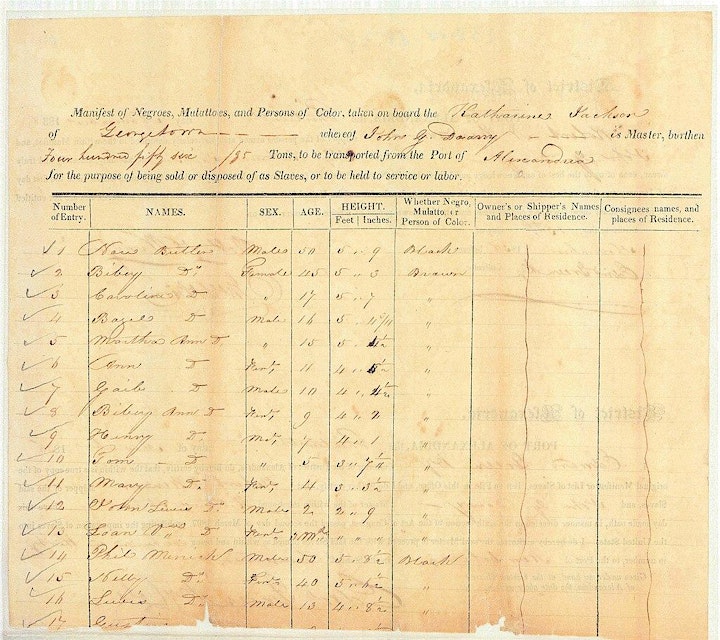 Manifest of Negroes, Mulattoes, and Persons of Color, taken on board the Katharine Jackson
of Georgetown whereof John G. is Master, burthen
Four hundred fifty six /95 Tons, to be transported from the Port of Alexandria
for the purpose of being sold or disposed of as Slaves, or to be held to service or labor.
Number of Entry. NAMES. SEX. AGE. HEIGHT. Feet Inches. Whether Negro, Mulatto, or Person of Color. Owner's or Shipper's Names and Places of Residence. Consignees names, and places of Residence.
1 Nace Butler Male 50 5 " 9 Black
2 Bibey Do Female 45 5 " 3 Brown
3 Caroline D " 17 5 " 7 "
4 Bazel D Male 16 5 "
5 Martha Ann D " 15 5 " 4½ "
6 Ann D Fem, 11 4 " 5½ "
7 Gabe D Male 10 4 " 4½ "
8 Bibey Ann D Fem, 9 4 " 2 "
9 Henry D 7 4 " 1 "
10 Tom D " 5 3 " 7½ "
11 Mary Do Fem, 4 3 " 3½ "
12 John Lewis D Male 2 2 " 9 "
13 D Fem " " "
14 Phil Male 50 5 " 8½ Black
15 Nelly Do Fem 40 5 " 6½ "
16 Lewis D Male 13 4 " 8½ "
17